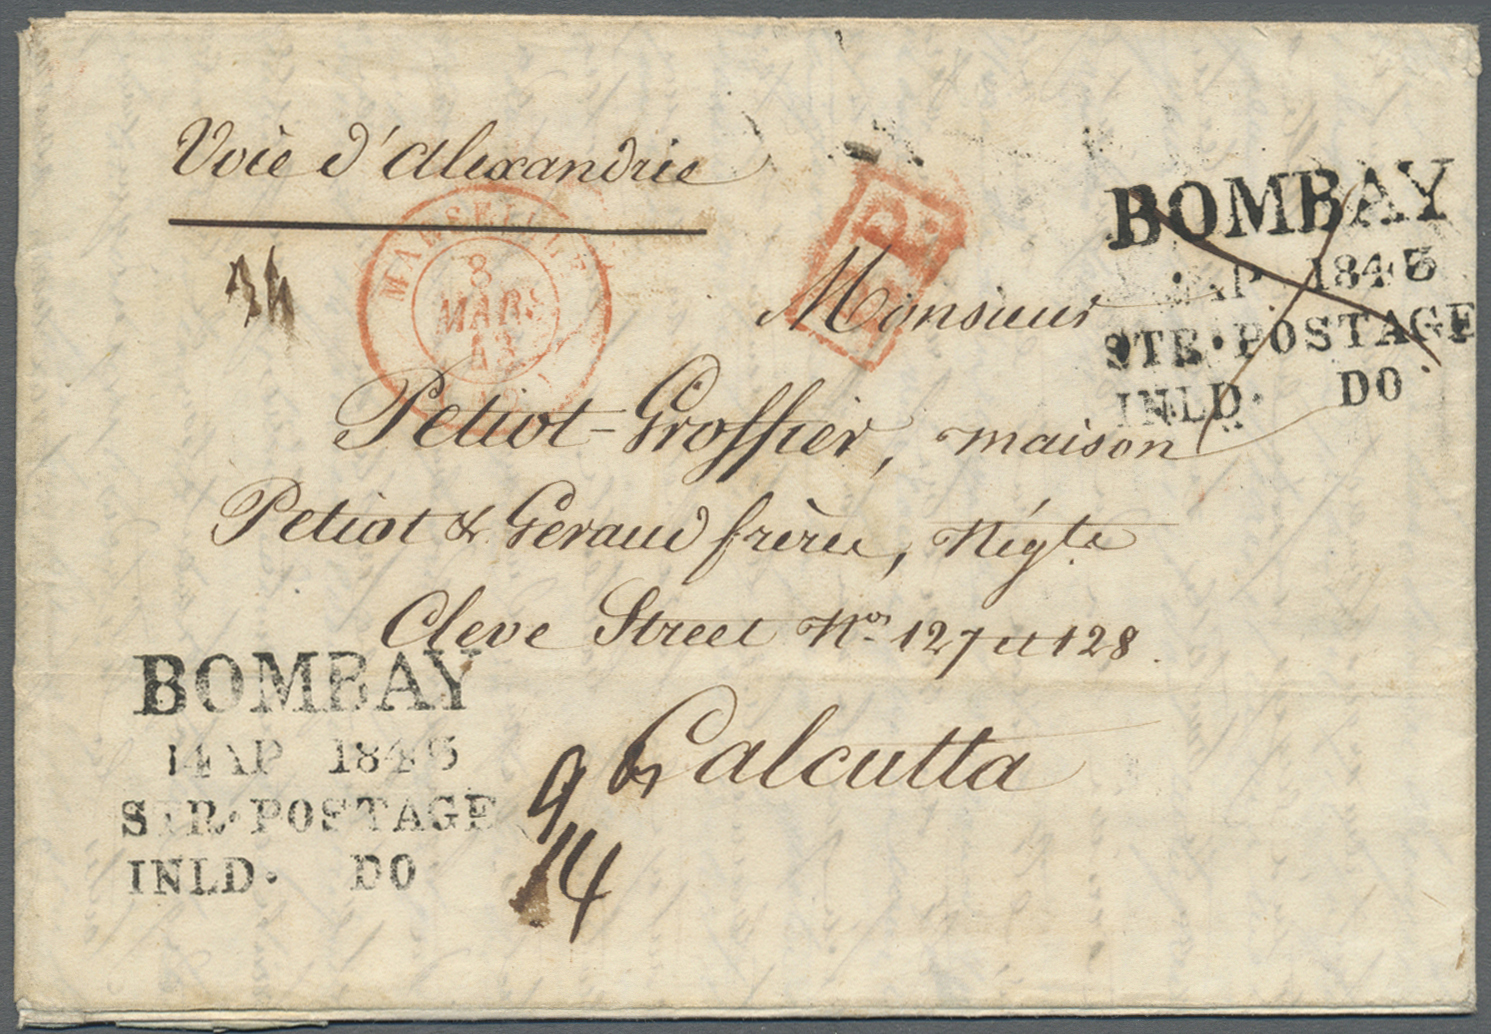 Voie d'Alexandrie
MARSEILLE
8
MARS
43
BOMBAY
AP 1843
STR. POSTAGE
INLD. DO
Monsieur
Petiot-Groffier, maison
Petiot & Geraud frères, Négts
Cleve Street Nos 127 et 128.
Calcutta
BOMBAY
14 AP 1843
STR. POSTAGE
INLD. DO
9
14